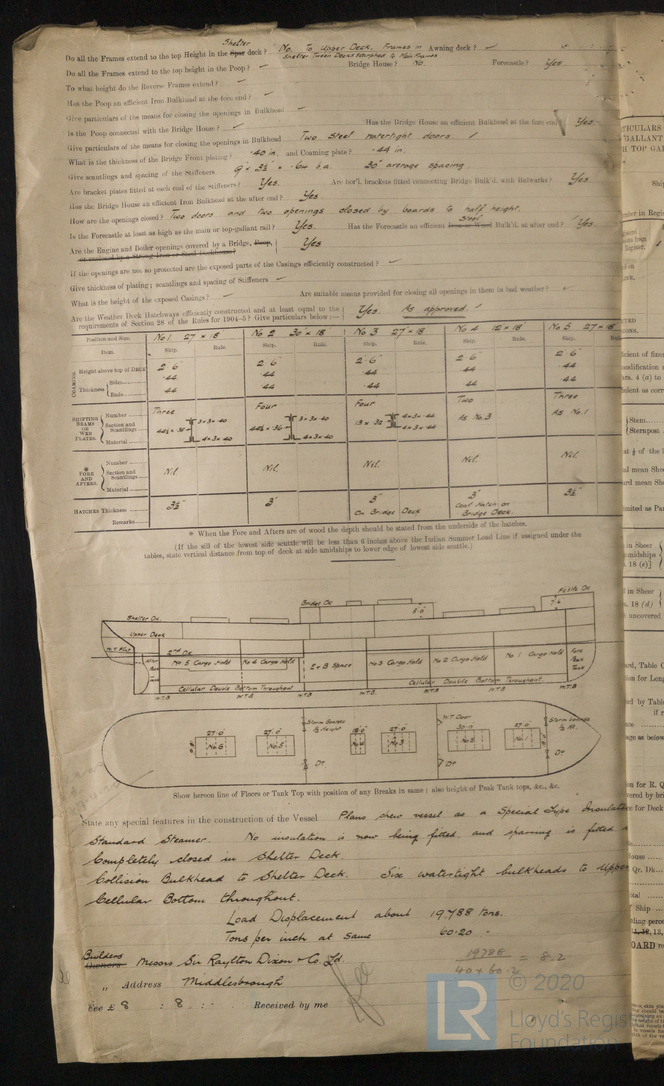 Shelter
Do all the Frames extend to the top Height in the Spar deck? No. To Upper Deck, Frames in Awning deck? ✓
Shelter Tween Decks attached to Main Frames
Do all the Frames extend to the top height in the Poop? ✓ Bridge House? No. Forecastle? Yes
To what height do the Reverse Frames extend? ✓
Has the Poop an efficient Iron Bulkhead at the fore end? ✓
Give particulars of the means for closing the openings in Bulkhead ✓
Is the Poop connected with the Bridge House? ✓ Has the Bridge House an efficient Bulkhead at the fore end? Yes
Give particulars of the means for closing the openings in Bulkhead Two steel watertight doors
What is the thickness of the Bridge Front plating? .40 in. and Coaming plate? .44 in.
Give scantlings and spacing of the Stiffeners 30" average spacing
Are bracket plates fitted at each end of the Stiffeners? Yes. Are hor'l. brackets fitted connecting Bridge Bulk'd. with Bulwarks? Yes.
Has the Bridge House an efficient Iron Bulkhead at the after end? Yes
How are the openings closed? Two doors and two openings closed by boards to half height.
Is the Forecastle at least as high as the main or top-gallant rail? Yes. Has the Forecastle an efficient Steel Iron or Wood Bulk'd. at after end? Yes.
Are the Engine and Boiler openings covered by a Bridge, Poop, Yes
or enclosed by a Strong Iron or Steel Deckhouse?
If the openings are not so protected are the exposed parts of the Casings efficiently constructed? ✓
Give thickness of plating; scantlings and spacing of Stiffeners ✓
What is the height of the exposed Casings? ✓ Are suitable means provided for closing all openings in them in bad weather? ✓
Are the Weather Deck Hatchways efficiently constructed and at least equal to the
requirements of Section 28 of the Rules for 1904-5? Give particulars below:— Yes. As approved.
Position and Size. No 1 27' × 18 No 2 30' × 18 No 3 27' × 18 No 4 12' × 18 No 5 27' × 18
Item. Ship. Rule. Ship. Rule. Ship. Rule. Ship. Rule. Ship.
COAMING Height above top of DECK 2'6" 2'6" 2'6" 2'6" 2'6"
Thickness Sides .44 .44 .44 .44 .44
Ends .44 .44 .44 .44 .44
SHIFTING BEAMS OR WEB PLATES. Number Three Four Four Two Three
Section and Scantlings 3×3×.40 3×3×.40 As No.3 As No.1
Material 4×3×.40 4×3×.40 4×3×.40
* FORE AND AFTERS. Number
Section and Scantlings Nil Nil. Nil. Nil. Nil.
Material
HATCHES Thickness 3½" 3" 3" 3" 3½"
Remarks On Bridge Deck Coal Hatch on Bridge Deck.
* When the Fore and Afters are of wood the depth should be stated from the underside of the hatches.
(If the sill of the lowest side scuttle will be less than 6 inches above the Indian Summer Load Line if assigned under the
tables, state vertical distance from top of deck at side amidships to lower edge of lowest side scuttle.)
Bridge Dk
Shelter Dk.
Upper Deck
2nd Dk
No 5 Cargo Hold No 4 Cargo Hold E & B Space No 3 Cargo Hold No 2 Cargo Hold No 1 Cargo Hold Fore Peak Tank
Cellular Double Bottom Throughout Cellular Double Bottom Throughout.
W.T.B W.T.B W.T.B W.T.B W.T.B
Storm Boards ½ Height W.T Door Storm Boards
27'-0" 27'-0" 27'-0" 30'-0" 27'-0"
No.6 No.5 No.3 No.2 No.1
Do Do
Show hereon line of Floors or Tank Top with position of any Breaks in same; also height of Peak Tank tops, &c., &c.
State any special features in the construction of the Vessel Plans show vessel as a Special Type
Standard Steamer. No insulation is now being fitted and sparring is fitted
Completely closed in Shelter Deck.
Collision Bulkhead to Shelter Deck. Six watertight bulkheads to upper
Cellular Bottom throughout.
Load Displacement about 19,788 tons.
Tons per inch at same 60.20
Builders
Owners Messrs Sir Raylton Dixon & Co. Ld.
19788
40 × 60.2 = 8.2
,, Address Middlesbrough
Fee £ 8 : 8 : - Received by me
LR © 2020
Lloyd's Register
Foundation